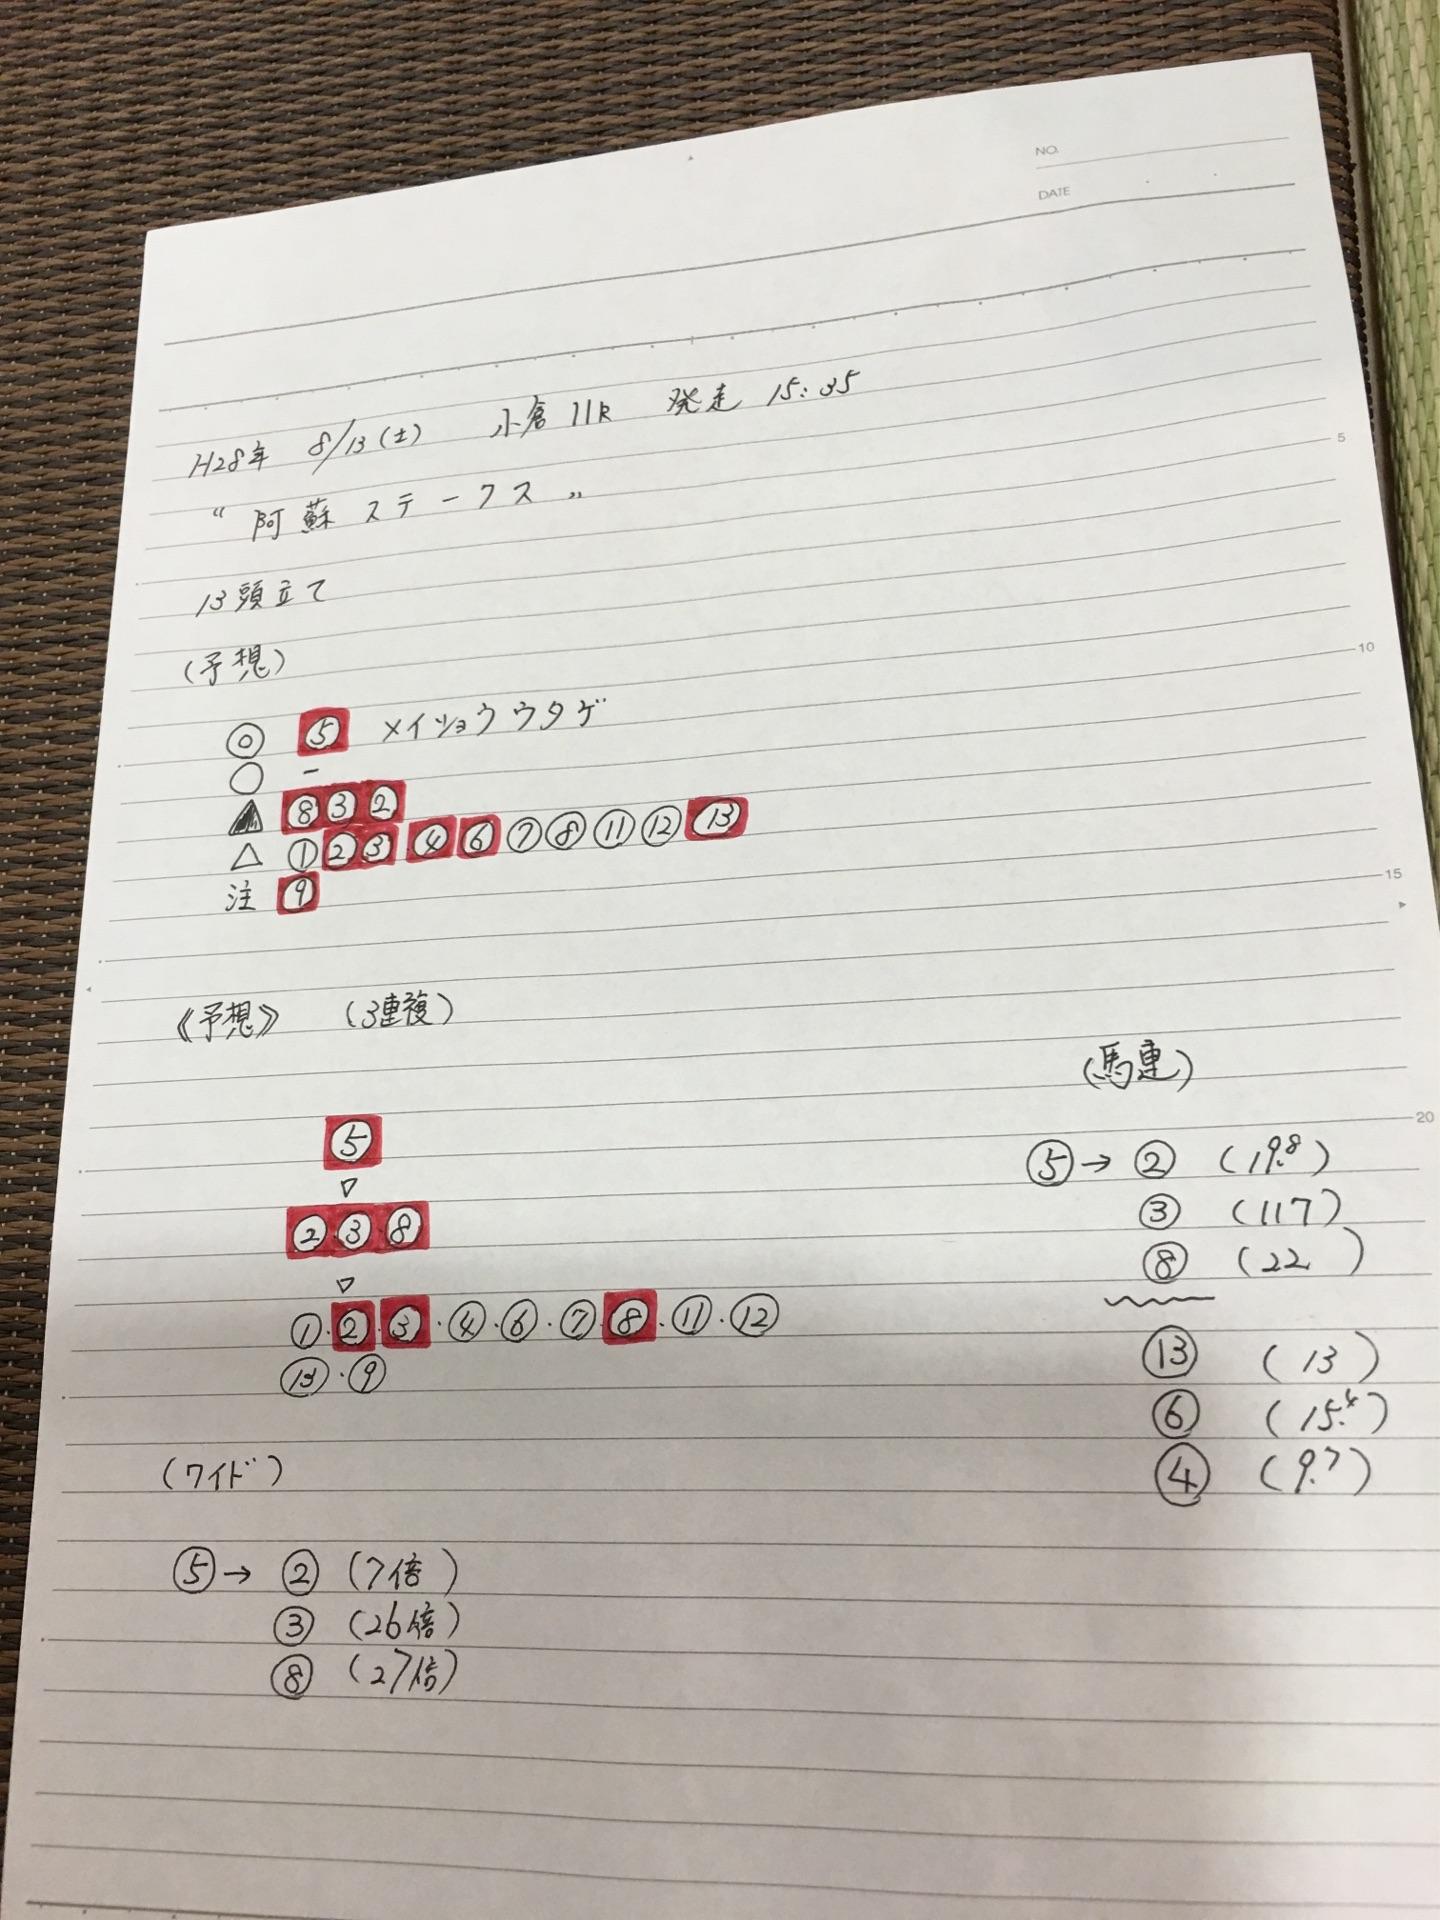 NO.
DATE
H28年 8/13(土) 小倉11R 発走 15:35
“阿蘇ステークス”
13頭立て
(予想)
◎ ⑤ メイショウウタゲ
○ -
▲ ⑧③②
△ ①②③④⑥⑦⑧⑪⑫⑬
注 ⑨
《予想》 (3連複)
⑤
▽
②・③・⑧
▽
①・②・③・④・⑥・⑦・⑧・⑪・⑫
⑬・⑨
(ワイド)
⑤→②(7倍)
③(26倍)
⑧(27倍)
(馬連)
⑤→②(19.8)
③(117)
⑧(22)
⑬(13)
⑥(15.4)
④(9.7)
5
10
15
20